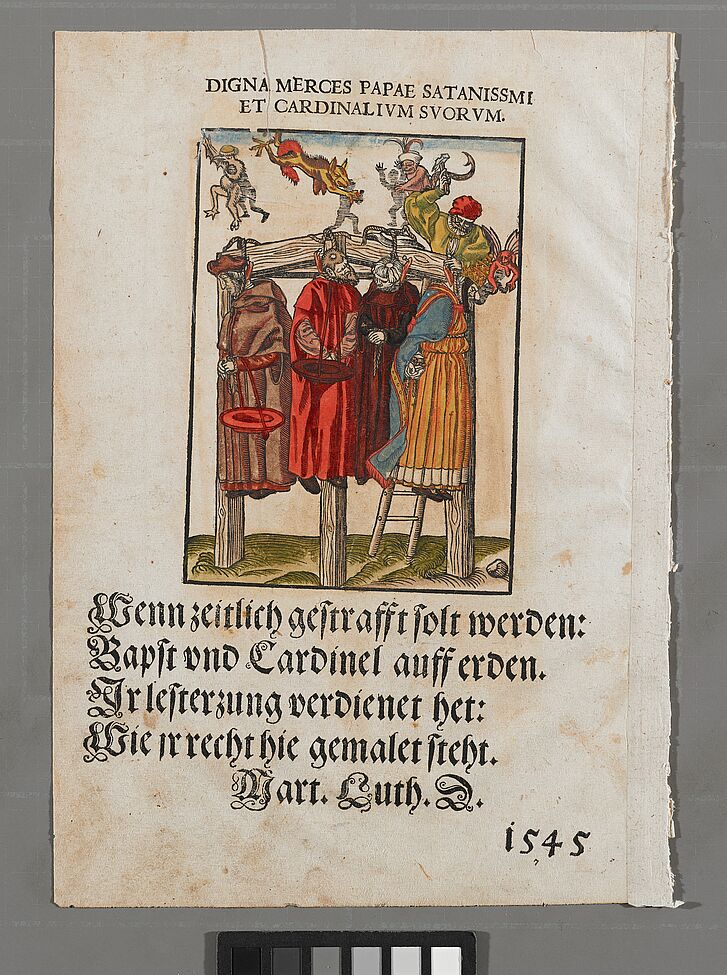 DIGNA MERCES PAPAE SATANISSMI
ET CARDINALIVM SVORVM.
Wenn zeitlich gestrafft solt werden:
Bapst vnd Cardinel auff erden.
Jr lesterzung verdienet het:
Wie jr recht hie gemalet steht.
Mart. Luth. D.
1545